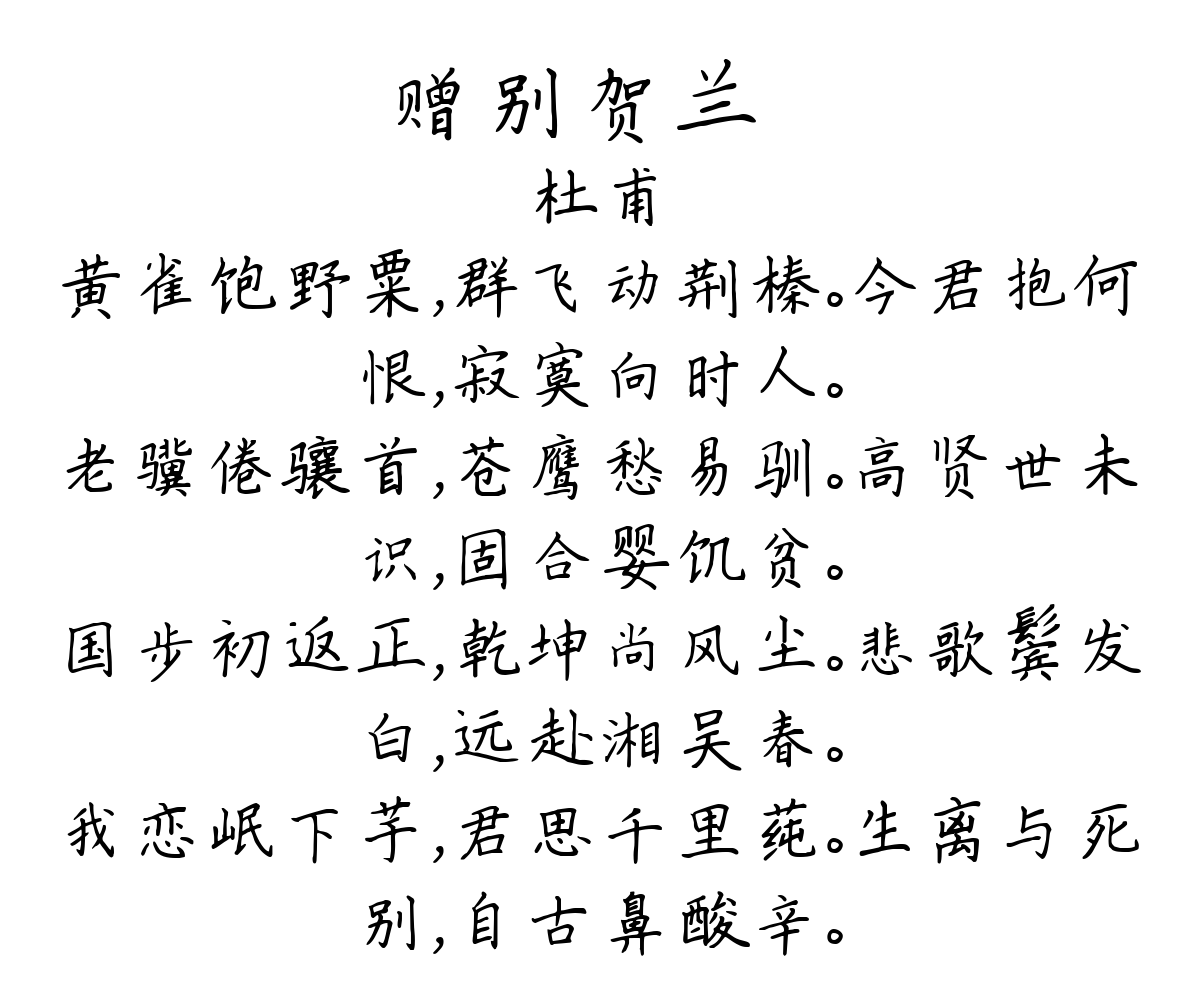 赠别贺兰
杜甫
黄雀饱野粟,群飞动荆榛。今君抱何
恨,寂寞向时人。
老骥倦骧首,苍鹰愁易驯。高贤世未
识,固合婴饥贫。
国步初返正,乾坤尚风尘。悲歌鬓发
白,远赴湘吴春。
我恋岷下芋,君思千里莼。生离与死
别,自古鼻酸辛。